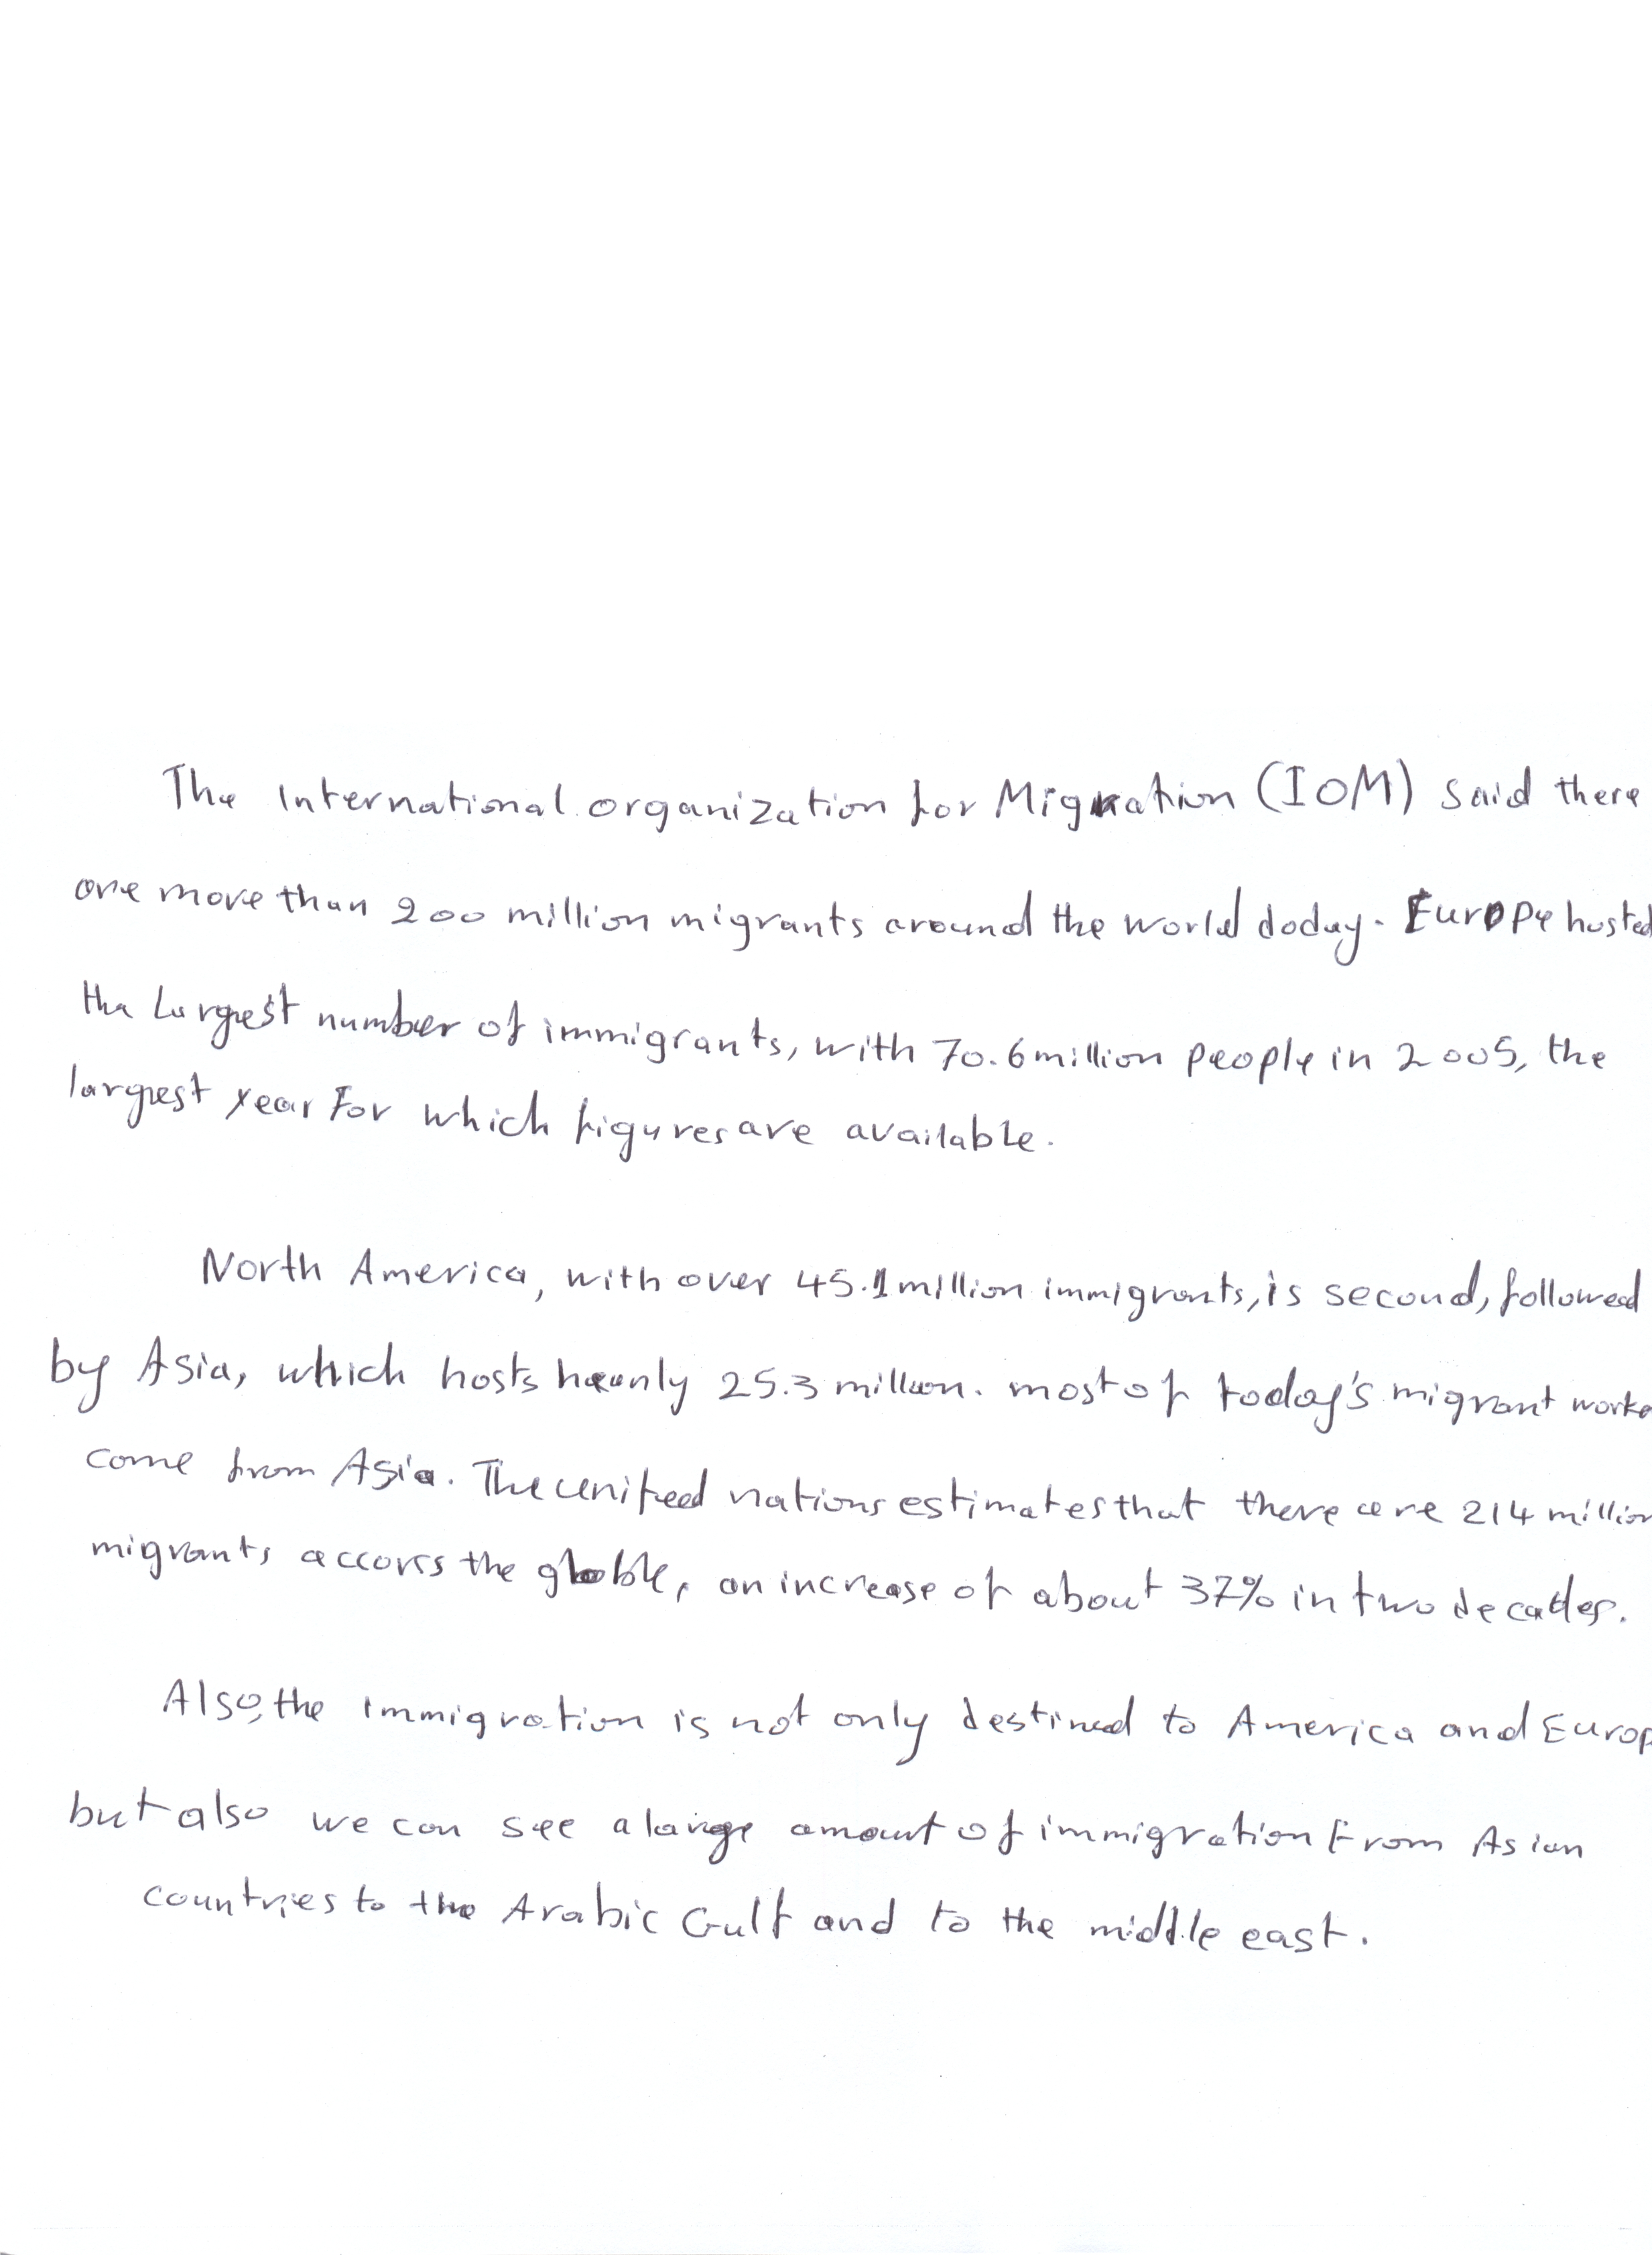 The International organization for Migration (IOM) said there
are more than 200 million migrants around the world doday. Europe hosted
the Largest number of immigrants, with 70.6 million people in 2005, the
largest year For which figures are available.
North America, with over 45.1 million immigrants, is second, followed
by Asia, which hosts 25.3 million. most of today's migrant worke
come from Asia. The united nations estimates that there are 214 million
migrants accorss the globle, an increase of about 37% in two decades.
Also, the immigration is not only destined to America and Europ
but also we can see a large amount of immigration From Asian
countries to the Arabic Gulf and to the middle east.